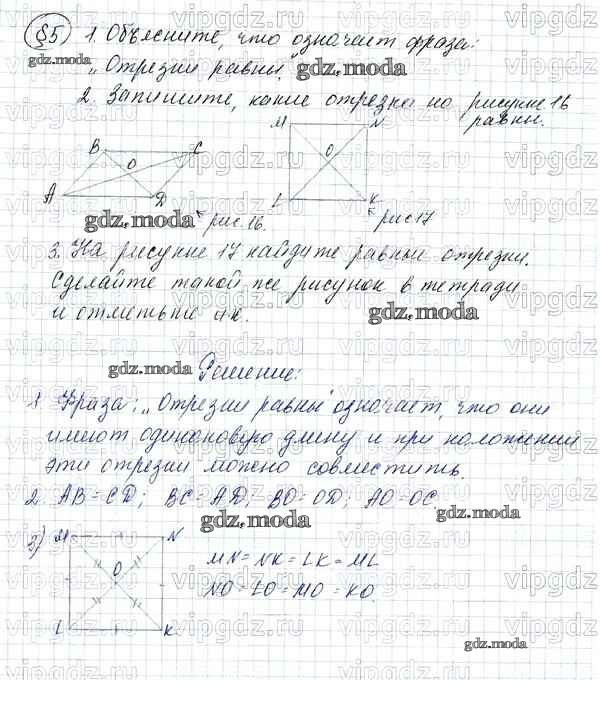 §5 1. Объясните, что означает фраза:
„Отрезки равны."
2. Запишите, какие отрезки на рисунке 16
равны.
B C
O
A D
рис. 16.
M N
O
L K
рис 17
3. На рисунке 17 найдите равные отрезки.
Сделайте такой же рисунок в тетради
и отметьте их.
Решение:
1 Фраза: „Отрезки равны" означает, что они
имеют одинаковую длину и при наложении
эти отрезки можно совместить.
2. AB = CD; BC = AD; BO = OD; AO = OC.
3)
M N
O
L K
MN = NK = LK = ML
NO = LO = MO = KO.
gdz.moda
gdz.moda
gdz.moda
gdz.moda
gdz.moda
gdz.moda
gdz.moda
gdz.moda
vipgdz.ru